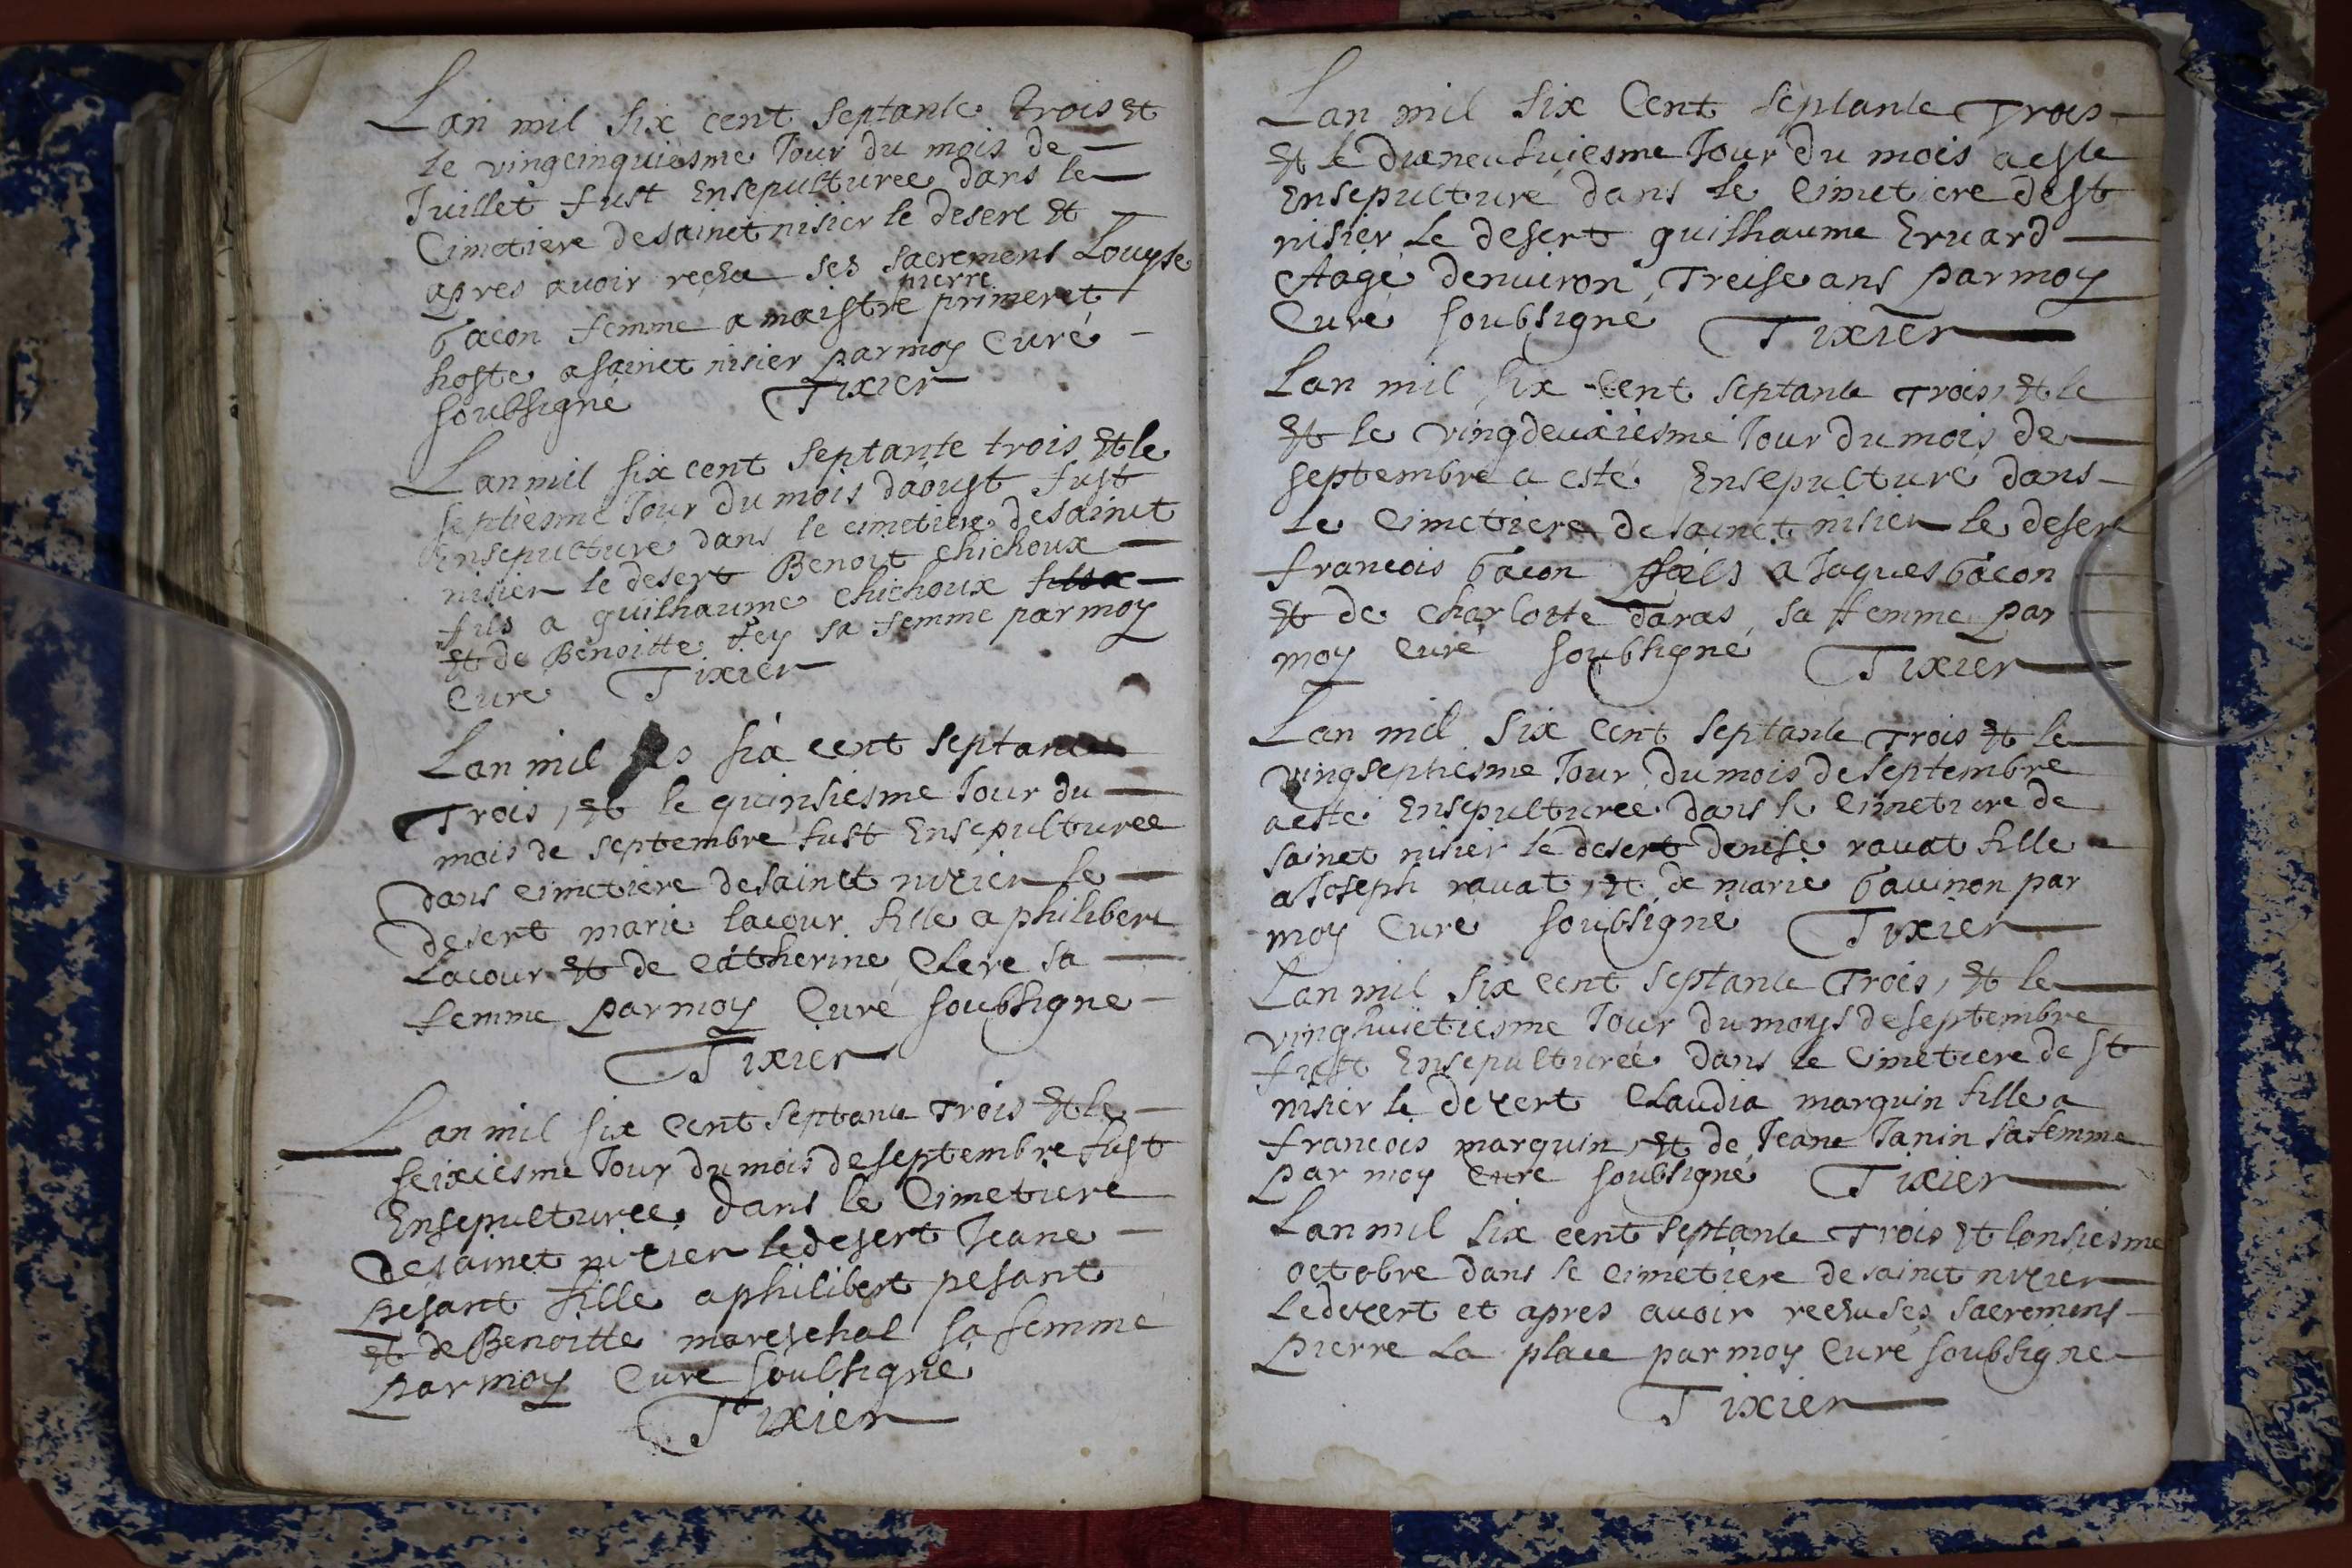 Lan mil six cent septante trois et
le vingcinquiesme Jour du mois de
Juillet fust Ensepulturee dans le
Cimetiere de sainct nisier le desert et
apres avoir receu ses sacremens Louyse
pierre
bacon femme a maistre primeret
hoste a sainct nisier par moy Curé
soubsigné Tixier
Lan mil six cent septante trois et le
septiesme Jour du mois daoust fust
Ensepulture dans le cimetiere de sainct
nisier le desert Benoit chichoux
fils a guilhaume chichoux fils a
et de Benoitte fey sa femme par moy
Curé Tixier
Lan mil six cent septante
Trois, et le quinsiesme Jour du
mois de septembre fust Ensepulturee
dans cimetiere de sainct nizier le
desert marie lacour fille a philibert
Lacour et de catherine Clere sa
femme par moy Curé soubsigne
Tixier
Lan mil six cent septante trois et le
seixiesme Jour du mois de septembre fust
Ensepulturee dans le Cimetiere
de sainct nizier le desert Jeane
pesant fille a philibert pesant
et de Benoitte mareschal sa femme
par moy Curé soubsigné
Tixier
Lan mil six Cent septante Trois
et le dixneufuiesme Jour du mois a este
Ensepulturé dans le Cimetiere de st
nisier le desert guilhaume Eruard
Aagé denviron Treise ans par moy
Curé soubsigné Tixier
Lan mil six cent septante trois, et le
et le vingdeuxiesme Jour du mois de
septembre a esté Ensepulturé dans
le Cimetiere de sainct nisier le desert
francois bacon fils a Jaques bacon
et de Charlotte daras, sa femme par
moy Curé soubsigné Tixier
Lan mil six cent septante trois et le
vingseptiesme Jour du mois de septembre
a esté Ensepulturée dans le Cimetiere de
sainct nisier le desert denise ravat fille
a Joseph ravat, et de marie bavinon par
moy Curé soubsigné Tixier
Lan mil six cent septante Trois, et le
vinghuictiesme Jour du moys de septembre
fust Ensepulturée dans le Cimetiere de st
nisier le dezert Claudia marquin fille a
francois marquin, et de Jeane Janin sa femme
par moy Curé soubsigné Tixier
Lan mil six cent septante Trois et lonsiesme
octobre dans le cimetiere de sainct nizier
le dezert et apres avoir recheu ses sacremens
pierre La place par moy Curé soubsigne
Tixier